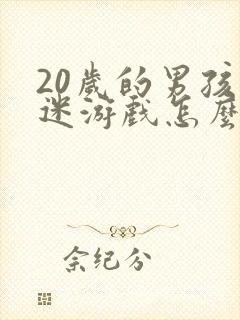 20歲的男孩
迷游戲怎麼
余紀分